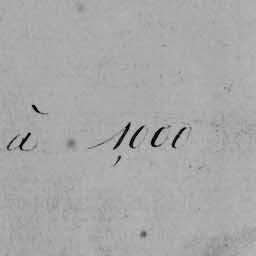 à 1,000